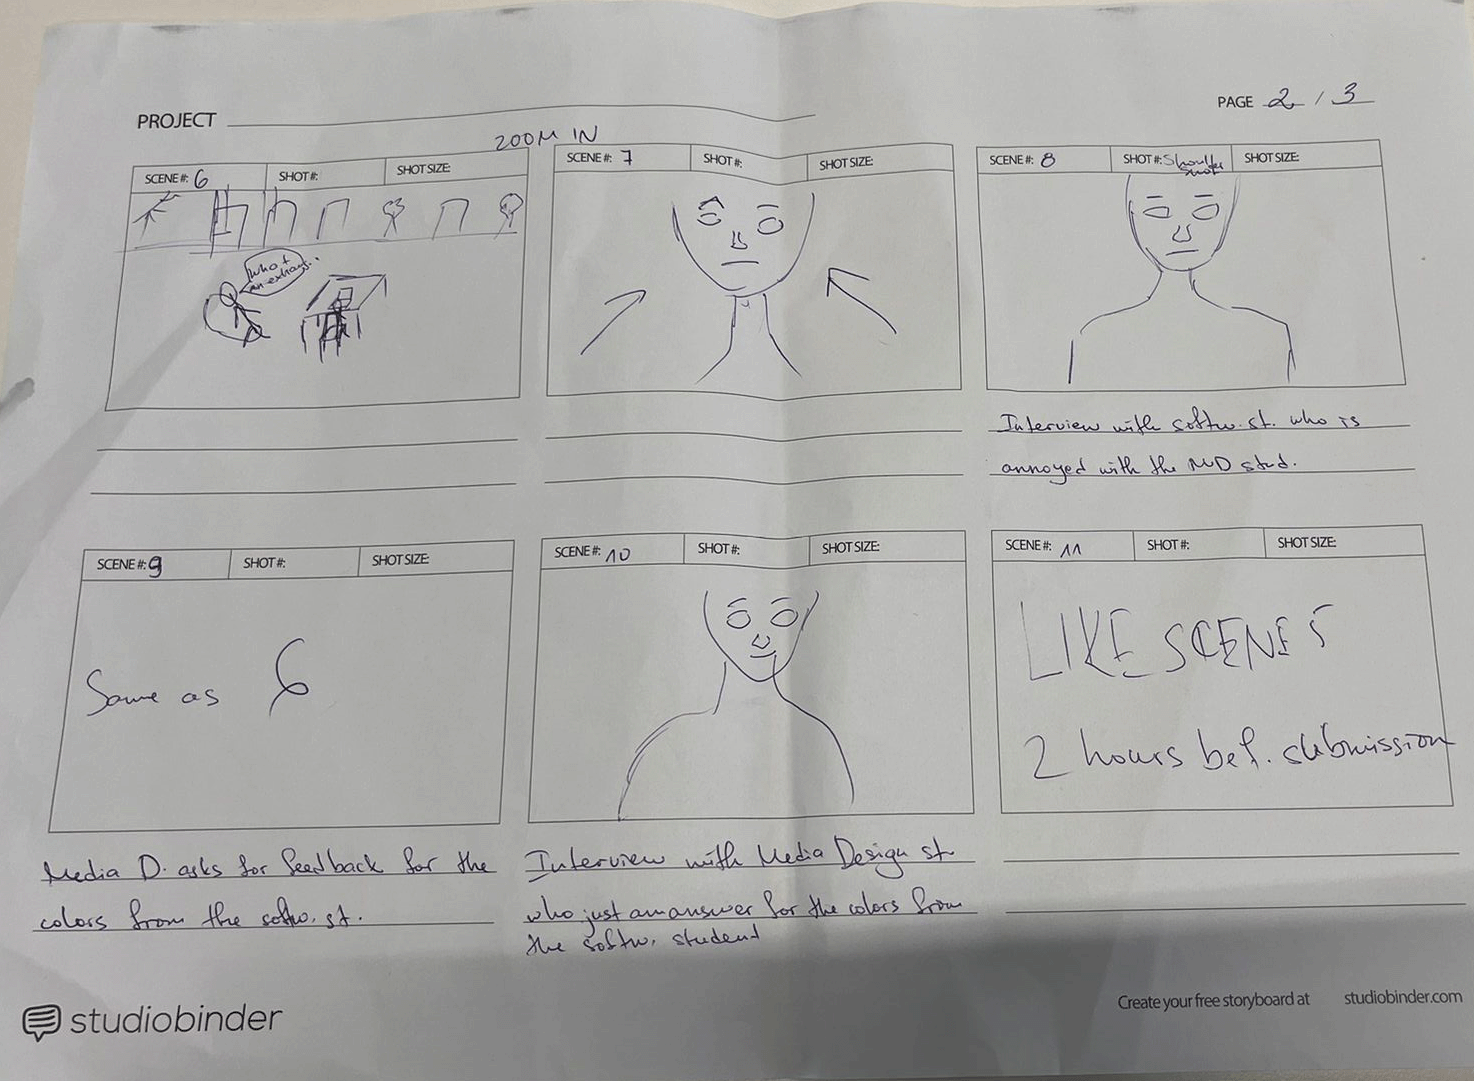 PROJECT
PAGE 2 / 3
ZOOM IN
SCENE #: 6 SHOT #: SHOT SIZE:
what
an exhaus..
SCENE #: 7 SHOT #: SHOT SIZE:
SCENE #: 8 SHOT #: Shoulder shot SHOT SIZE:
Interview with softw. st. who is
annoyed with the MD stud.
SCENE #: 9 SHOT #: SHOT SIZE:
Same as 6
Media D. asks for feedback for the
colors from the softw. st.
SCENE #: 10 SHOT #: SHOT SIZE:
Interview with Media Design st.
who just an answer for the colors from
the softw. student
SCENE #: 11 SHOT #: SHOT SIZE:
LIKE SCENE 5
2 hours bef. submission
studiobinder
Create your free storyboard at studiobinder.com